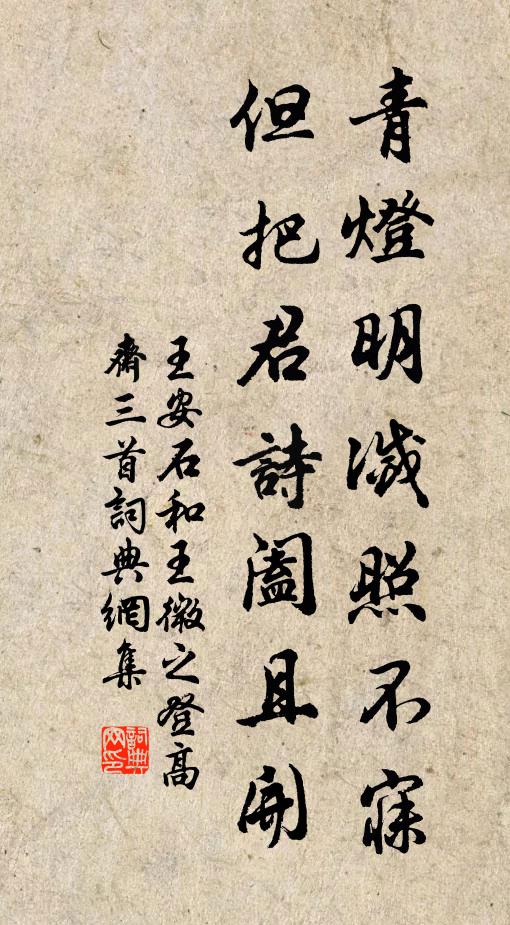 青燈明滅照不寐
但把君詩闔且開
王安石和王微之登高
齋三首詞典網集
詞典網印